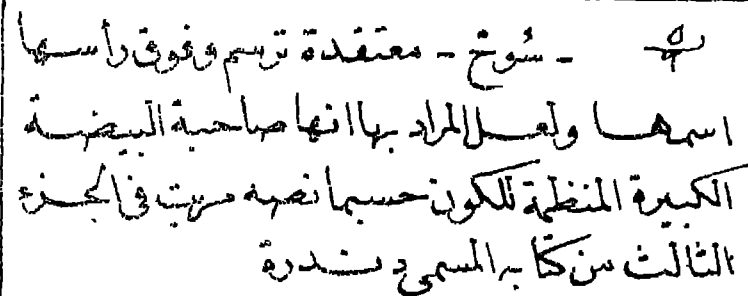 - سُوخ - معتقدة ترسم وفوق رأسها
اسمها ولعل المراد بها انها صاحبة البيضة
الكبيرة المنظمة للكون حسبما نصه مريت فى الجزء
الثالث من كتابه المسمى دندرة